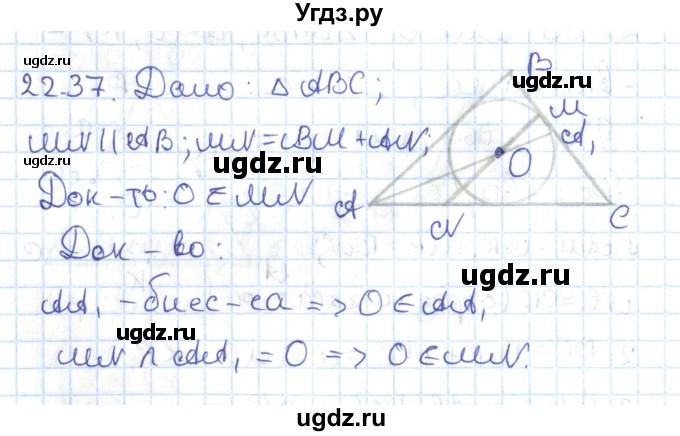 Угдз.ру
ugdz.ru
22.37. Дано: △ABC;
ugdz.ru
B
M
MN || AB; MN = BM + AN;
A₁
ugdz.ru
O
Док-ть: O ∈ MN
A
N
C
Док-во:
ugdz.ru
AA₁ - бисс-са => O ∈ AA₁
ugdz.ru
MN ∧ AA₁ = O => O ∈ MN.
ugdz.ru
ugdz.ru